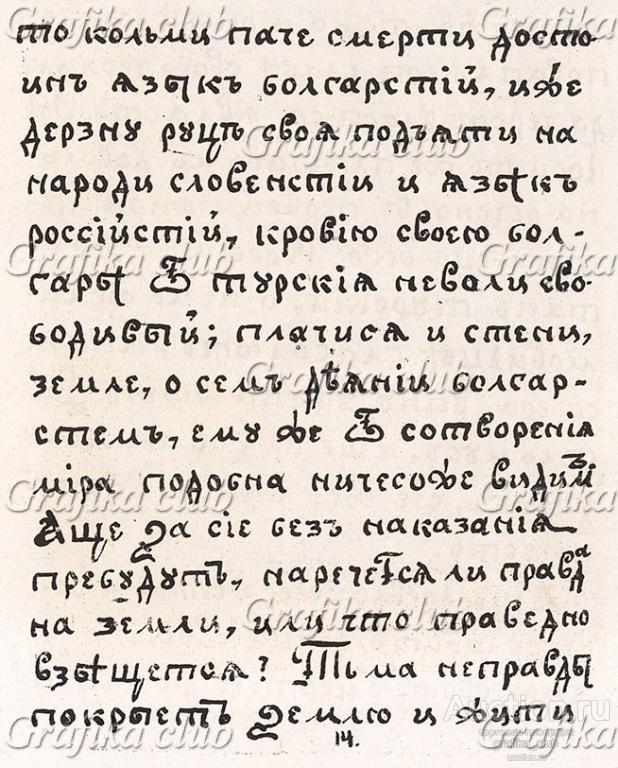 то кольми паче смерти досто-
инъ языкъ болгарстій, иже
дерзну руцѣ своя подъяти на
народи словенстіи и языкъ
россійстій, кровію своею бол-
гары Ѿ турскія неволи сво-
бодивый; плачися и стени,
земле, о семъ дѣяніи болгар-
стемъ, ему же Ѿ сотворенія
міра подобна ничесоже видимъ
Аще за сіе безъ наказанія
пребудутъ, наречется ли правда
на земли, или что праведно
взыщется? Тьма неправды
покрыетъ землю и жити
14.
Grafika club
Auction.ru